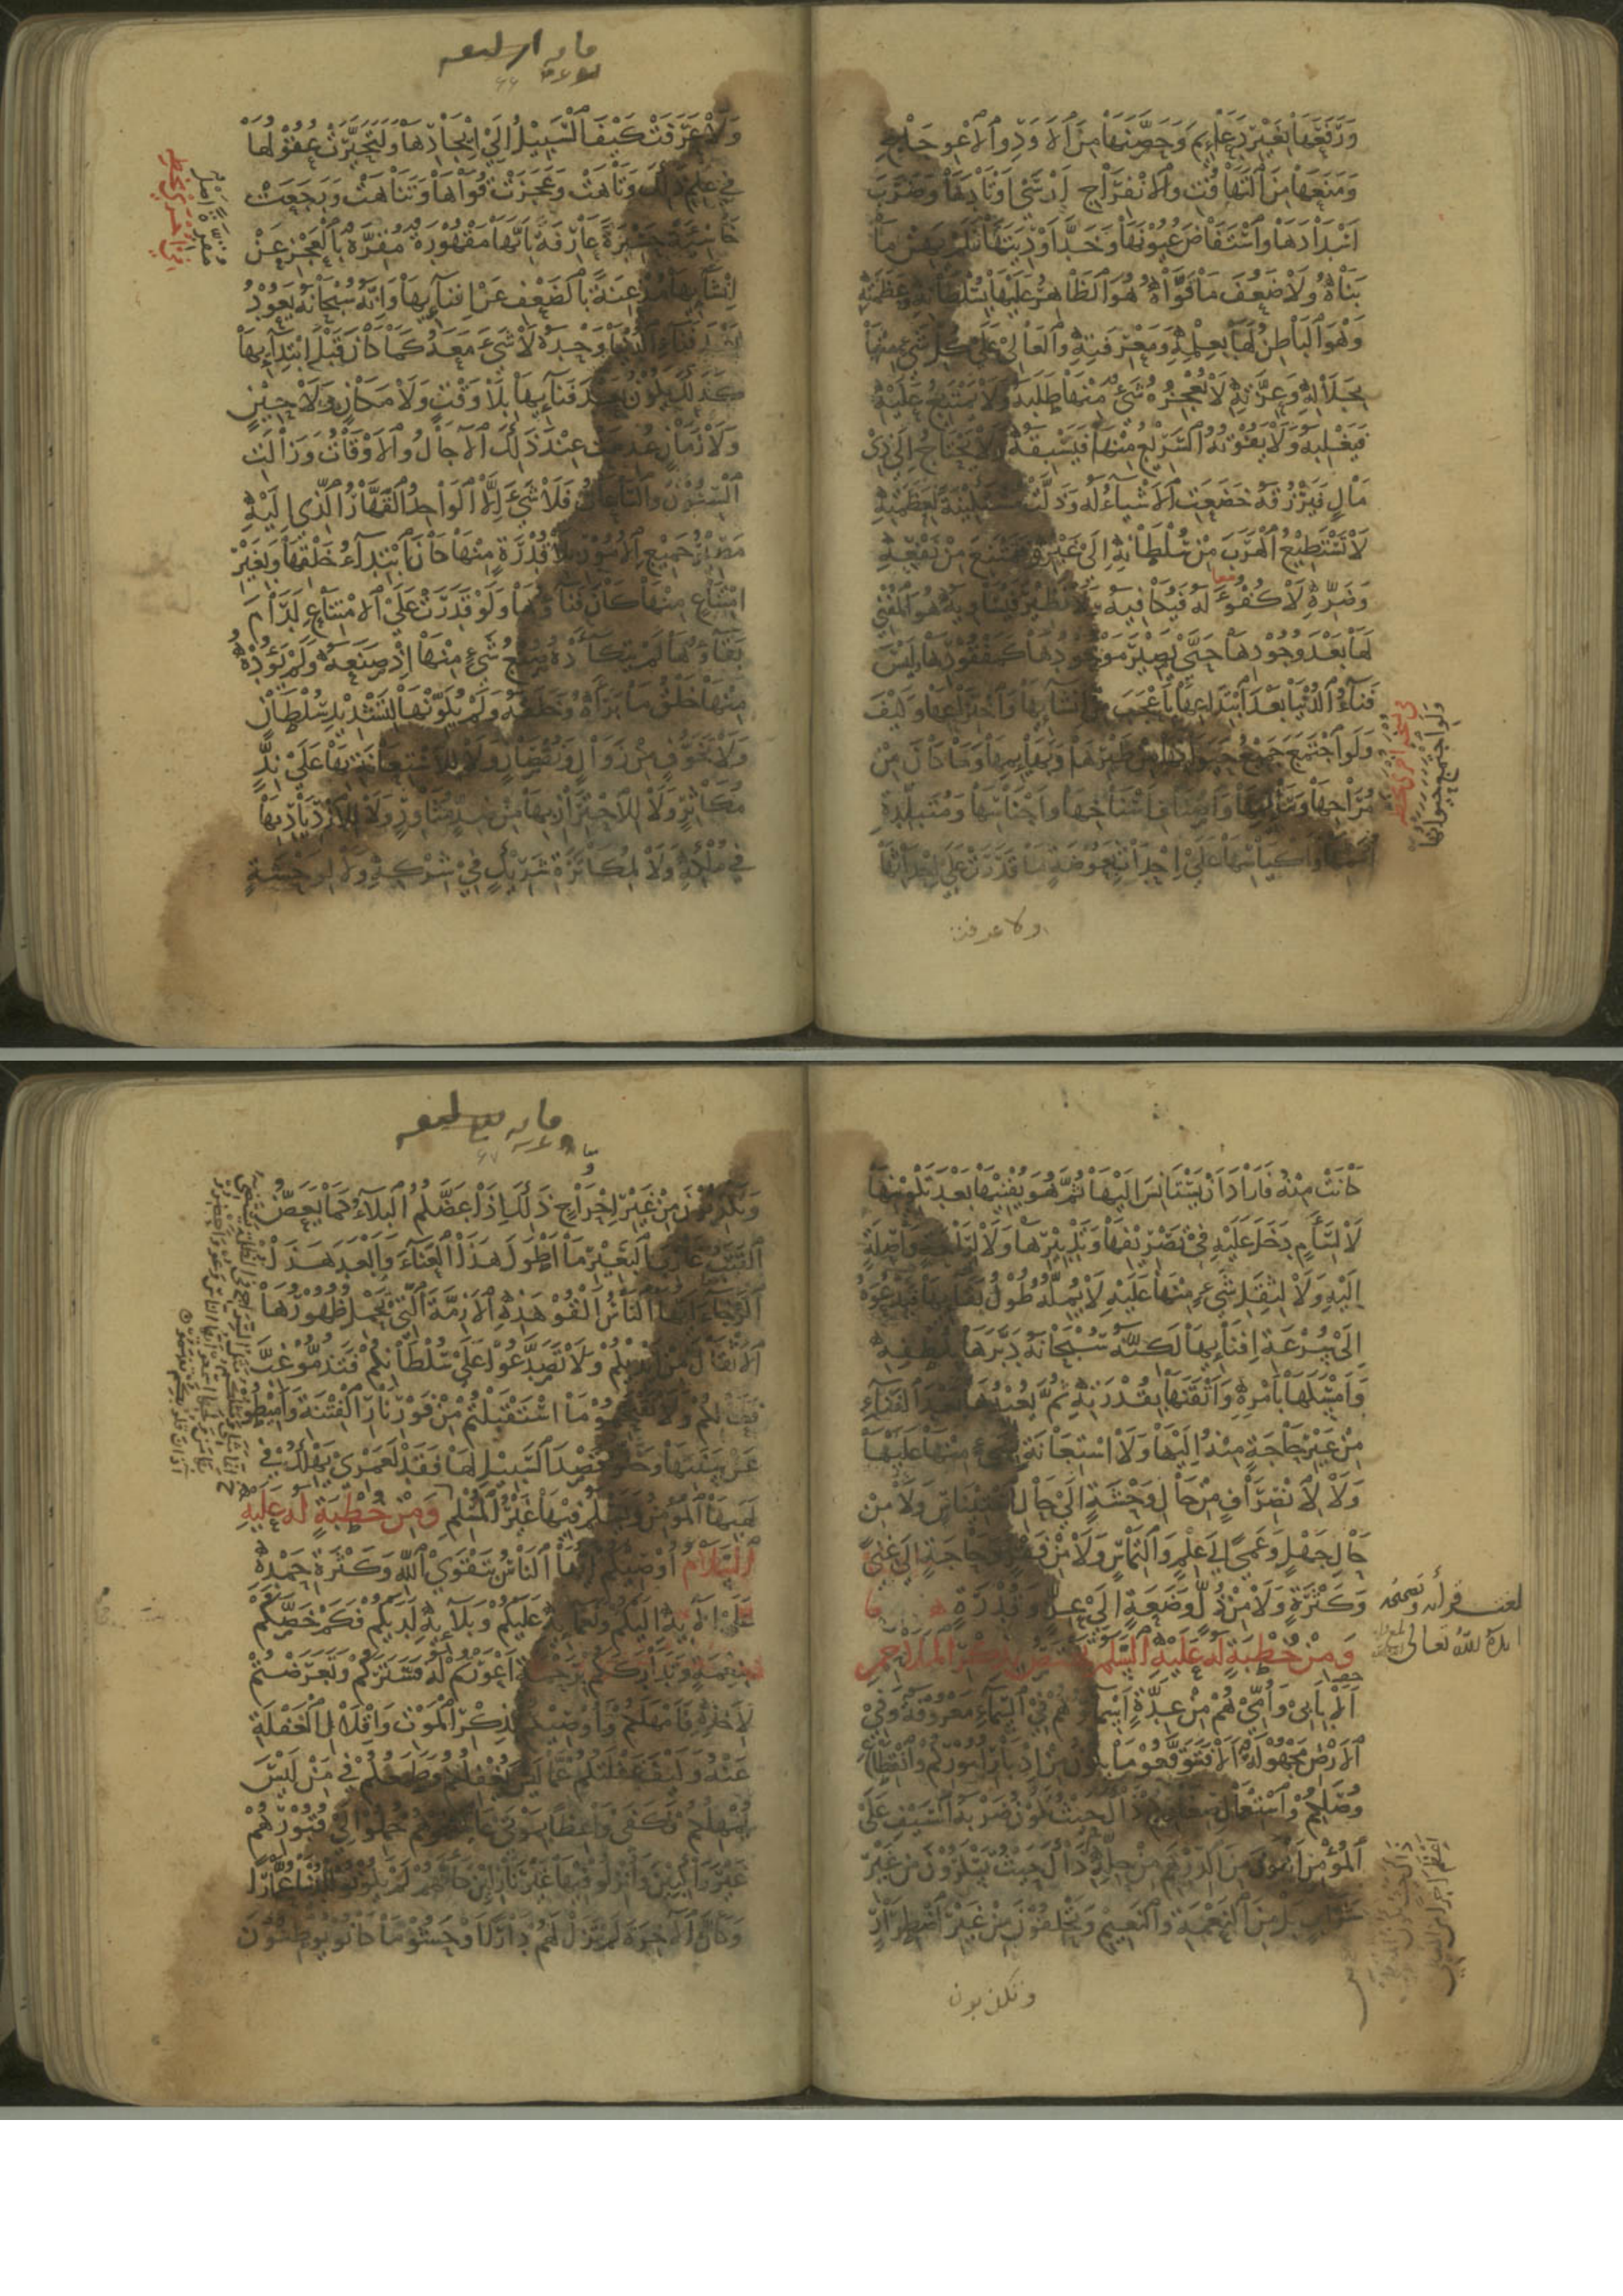 وَرَفَعَهَا بِغَيْرِ دَعَائِمَ وَحَصَّنَهَا مِنَ الْاَوَدِ وَالْاِعْوِجَاجِ
وَمَنَعَهَا مِنَ التَّهَافُتِ وَالْاِنْفِرَاجِ اَرْسَى اَوْتَادَهَا وَضَرَبَ
اَسْدَادَهَا وَاسْتَفَاضَ عُيُونَهَا وَخَدَّ اَوْدِيَتَهَا فَلَمْ يَهِنْ مَا
بَنَاهُ وَلَا ضَعُفَ مَا قَوَّاهُ هُوَ الظَّاهِرُ عَلَيْهَا بِسُلْطَانِهِ وَعَظَمَتِهِ
وَهُوَ الْبَاطِنُ لَهَا بِعِلْمِهِ وَمَعْرِفَتِهِ وَالْعَالِي عَلَى كُلِّ شَيْءٍ مِنْهَا
بِجَلَالِهِ وَعِزَّتِهِ لَا يُعْجِزُهُ شَيْءٌ مِنْهَا طَلَبَهُ وَلَا يَمْتَنِعُ عَلَيْهِ
فَيَغْلِبَهُ وَلَا يَفُوتُهُ السَّرِيعُ مِنْهَا فَيَسْبِقَهُ وَلَا يَحْتَاجُ اِلَى ذِي
مَالٍ فَيَرْزُقَهُ خَضَعَتِ الْاَشْيَاءُ لَهُ وَذَلَّتْ مُسْتَكِينَةً لِعَظَمَتِهِ
لَا تَسْتَطِيعُ الْهَرَبَ مِنْ سُلْطَانِهِ اِلَى غَيْرِهِ فَتَمْتَنِعَ مِنْ نَفْعِهِ
وَضَرِّهِ لَا كُفُؤَ لَهُ فَيُكَافِيهِ وَلَا نَظِيرَ فَيُسَاوِيهِ هُوَ الْمُفْنِي
لَهَا بَعْدَ وُجُودِهَا حَتَّى يَصِيرَ مَوْجُودُهَا كَمَفْقُودِهَا وَلَيْسَ
فَنَاءُ الدُّنْيَا بَعْدَ ابْتِدَاعِهَا بِاَعْجَبَ مِنْ اِنْشَائِهَا وَاخْتِرَاعِهَا وَكَيْفَ
وَلَوِ اجْتَمَعَ جَمِيعُ حَيَوَانِهَا مِنْ طَيْرِهَا وَبَهَائِمِهَا وَمَا كَانَ مِنْ
مُرَاحِهَا وَسَائِمِهَا وَاَصْنَافِ اَسْنَاخِهَا وَاَجْنَاسِهَا وَمُتَبَلِّدَةِ
اُمَمِهَا وَاَكْيَاسِهَا عَلَى اِحْدَاثِ بَعُوضَةٍ مَا قَدَرَتْ عَلَى اِحْدَاثِهَا
ولا عرفت
وَلَوِ اجْتَمَعَ جَمِيعُ حَيَوَانِهَا
وَلَا عَرَفَتْ كَيْفَ السَّبِيلُ اِلَى اِيجَادِهَا وَلَتَحَيَّرَتْ عُقُولُهَا
فِي عِلْمِ ذَلِكَ وَتَاهَتْ وَعَجَزَتْ قُوَاهَا وَتَنَاهَتْ وَرَجَعَتْ
خَاسِئَةً حَسِيرَةً عَارِفَةً بِاَنَّهَا مَقْهُورَةٌ مُقِرَّةً بِالْعَجْزِ عَنْ
اِنْشَائِهَا مُذْعِنَةً بِالضَّعْفِ عَنْ اِفْنَائِهَا وَاَنَّهُ سُبْحَانَهُ يَعُودُ
بَعْدَ فَنَاءِ الدُّنْيَا وَحْدَهُ لَا شَيْءَ مَعَهُ كَمَا كَانَ قَبْلَ ابْتِدَائِهَا
كَذَلِكَ يَكُونُ بَعْدَ فَنَائِهَا بِلَا وَقْتٍ وَلَا مَكَانٍ وَلَا حِينٍ
وَلَا زَمَانٍ عُدِمَتْ عِنْدَ ذَلِكَ الْاٰجَالُ وَالْاَوْقَاتُ وَزَالَتِ
السِّنُونَ وَالسَّاعَاتُ فَلَا شَيْءَ اِلَّا الْوَاحِدُ الْقَهَّارُ الَّذِي اِلَيْهِ
مَصِيرُ جَمِيعِ الْاُمُورِ بِلَا قُدْرَةٍ مِنْهَا كَانَ ابْتِدَاءُ خَلْقِهَا وَبِغَيْرِ
امْتِنَاعٍ مِنْهَا كَانَ فَنَاؤُهَا وَلَوْ قَدَرَتْ عَلَى الْاِمْتِنَاعِ لَدَامَ
بَقَاؤُهَا لَمْ يَتَكَاءَدْهُ صُنْعُ شَيْءٍ مِنْهَا اِذْ صَنَعَهُ وَلَمْ يَؤُدْهُ
مِنْهَا خَلْقُ مَا بَرَاَهُ وَخَلَقَهُ وَلَمْ يُكَوِّنْهَا لِتَشْدِيدِ سُلْطَانٍ
وَلَا خَوْفٍ مِنْ زَوَالٍ وَنُقْصَانٍ وَلَا لِلْاِسْتِعَانَةِ بِهَا عَلَى نِدٍّ
مُكَاثِرٍ وَلَا لِلْاِحْتِرَازِ بِهَا مِنْ ضِدٍّ مُثَاوِرٍ وَلَا لِلْاِزْدِيَادِ بِهَا
فِي مُلْكِهِ وَلَا لِمُكَاثَرَةِ شَرِيكٍ فِي شِرْكِهِ وَلَا لِوَحْشَةٍ
كَانَتْ مِنْهُ فَاَرَادَ اَنْ يَسْتَأْنِسَ اِلَيْهَا ثُمَّ هُوَ يُفْنِيهَا بَعْدَ تَكْوِينِهَا
لَا لِسَأَمٍ دَخَلَ عَلَيْهِ فِي تَصْرِيفِهَا وَتَدْبِيرِهَا وَلَا لِرَاحَةٍ وَاصِلَةٍ
اِلَيْهِ وَلَا لِثِقَلِ شَيْءٍ مِنْهَا عَلَيْهِ لَا يُمِلُّهُ طُولُ بَقَائِهَا فَيَدْعُوَهُ
اِلَى سُرْعَةِ اِفْنَائِهَا لَكِنَّهُ سُبْحَانَهُ دَبَّرَهَا بِلُطْفِهِ
وَاَمْسَكَهَا بِاَمْرِهِ وَاَتْقَنَهَا بِقُدْرَتِهِ ثُمَّ يُعِيدُهَا بَعْدَ الْفَنَاءِ
مِنْ غَيْرِ حَاجَةٍ مِنْهُ اِلَيْهَا وَلَا اسْتِعَانَةٍ بِشَيْءٍ مِنْهَا عَلَيْهَا
وَلَا لِاِنْصِرَافٍ مِنْ حَالِ وَحْشَةٍ اِلَى حَالِ اسْتِيْنَاسٍ وَلَا مِنْ
حَالِ جَهْلٍ وَعَمًى اِلَى عِلْمٍ وَالْتِمَاسٍ وَلَا مِنْ فَقْرٍ وَحَاجَةٍ اِلَى غِنًى
وَكَثْرَةٍ وَلَا مِنْ ذُلٍّ وَضَعَةٍ اِلَى عِزٍّ وَقُدْرَةٍ
وَمِنْ خُطْبَةٍ لَهُ عَلَيْهِ السَّلَمُ تختص بِذِكْرِ الْمَلَاحِمِ
اَلَا بِاَبِي وَاُمِّي هُمْ مِنْ عِدَّةٍ اَسْمَاؤُهُمْ فِي السَّمَاءِ مَعْرُوفَةٌ وَفِي
الْاَرْضِ مَجْهُولَةٌ اَلَا فَتَوَقَّعُوا مَا يَكُونُ مِنْ اِدْبَارِ اُمُورِكُمْ وَانْقِطَاعِ
وُصَلِكُمْ وَاسْتِعْمَالِ صِغَارِكُمْ ذَاكَ حَيْثُ تَكُونُ ضَرْبَةُ السَّيْفِ عَلَى
الْمُؤْمِنِ اَهْوَنَ مِنَ الدِّرْهَمِ مِنْ حِلِّهِ ذَاكَ حَيْثُ تَسْكَرُونَ مِنْ غَيْرِ
شَرَابٍ بَلْ مِنَ النِّعْمَةِ وَالنَّعِيمِ وَتَحْلِفُونَ مِنْ غَيْرِ اضْطِرَارٍ
وتكذبون
ايده الله تعالى
اَعْظَمَ اَجْرًا مِنَ الْمُعْطِي
وَتَكْذِبُونَ مِنْ غَيْرِ اِحْرَاجٍ ذَلِكَ اِذَا عَضَّكُمُ الْبَلَاءُ كَمَا يَعَضُّ
الْقَتَبُ غَارِبَ الْبَعِيرِ مَا اَطْوَلَ هَذَا الْعَنَاءَ وَاَبْعَدَ هَذَا
الرَّجَاءَ اَيُّهَا النَّاسُ اَلْقُوا هَذِهِ الْاَزِمَّةَ الَّتِي تَحْمِلُ ظُهُورُهَا
الْاَثْقَالَ مِنْ اَيْدِيكُمْ وَلَا تَصَدَّعُوا عَلَى سُلْطَانِكُمْ فَتَذُمُّوا غِبَّ
فِعَالِكُمْ وَلَا تَقْتَحِمُوا مَا اسْتَقْبَلْتُمْ مِنْ فَوْرِ نَارِ الْفِتْنَةِ وَاَمِيطُوا
عَنْ سَنَنِهَا وَخَلُّوا قَصْدَ السَّبِيلِ لَهَا فَقَدْ لَعَمْرِي يَهْلِكُ فِي
لَهَبِهَا الْمُؤْمِنُ وَيَسْلَمُ فِيهَا غَيْرُ الْمُسْلِمِ وَمِنْ خُطْبَةٍ لَهُ عَلَيْهِ
السَّلَامُ اُوصِيكُمْ اَيُّهَا النَّاسُ بِتَقْوَى اللّٰهِ وَكَثْرَةِ حَمْدِهِ
عَلَى اٰلَائِهِ اِلَيْكُمْ وَنَعْمَائِهِ عَلَيْكُمْ وَبَلَائِهِ لَدَيْكُمْ فَكَمْ خَصَّكُمْ
بِنِعْمَةٍ وَتَدَارَكَكُمْ بِرَحْمَةٍ اَعْوَرْتُمْ لَهُ فَسَتَرَكُمْ وَتَعَرَّضْتُمْ
لِاَخْذِهِ فَاَمْهَلَكُمْ وَاُوصِيكُمْ بِذِكْرِ الْمَوْتِ وَاِقْلَالِ الْغَفْلَةِ
عَنْهُ وَكَيْفَ غَفْلَتُكُمْ عَمَّا لَيْسَ يُغْفِلُكُمْ وَطَمَعُكُمْ فِي مَنْ لَيْسَ
يُمْهِلُكُمْ فَكَفَى وَاعِظًا بِمَوْتَى عَايَنْتُمُوهُمْ حُمِلُوا اِلَى قُبُورِهِمْ
غَيْرَ رَاكِبِينَ وَاُنْزِلُوا فِيهَا غَيْرَ نَازِلِينَ كَاَنَّهُمْ لَمْ يَكُونُوا لِلدُّنْيَا عُمَّارًا
وَكَاَنَّ الْاٰخِرَةَ لَمْ تَزَلْ لَهُمْ دَارًا اَوْحَشُوا مَا كَانُوا يُوطِنُونَ